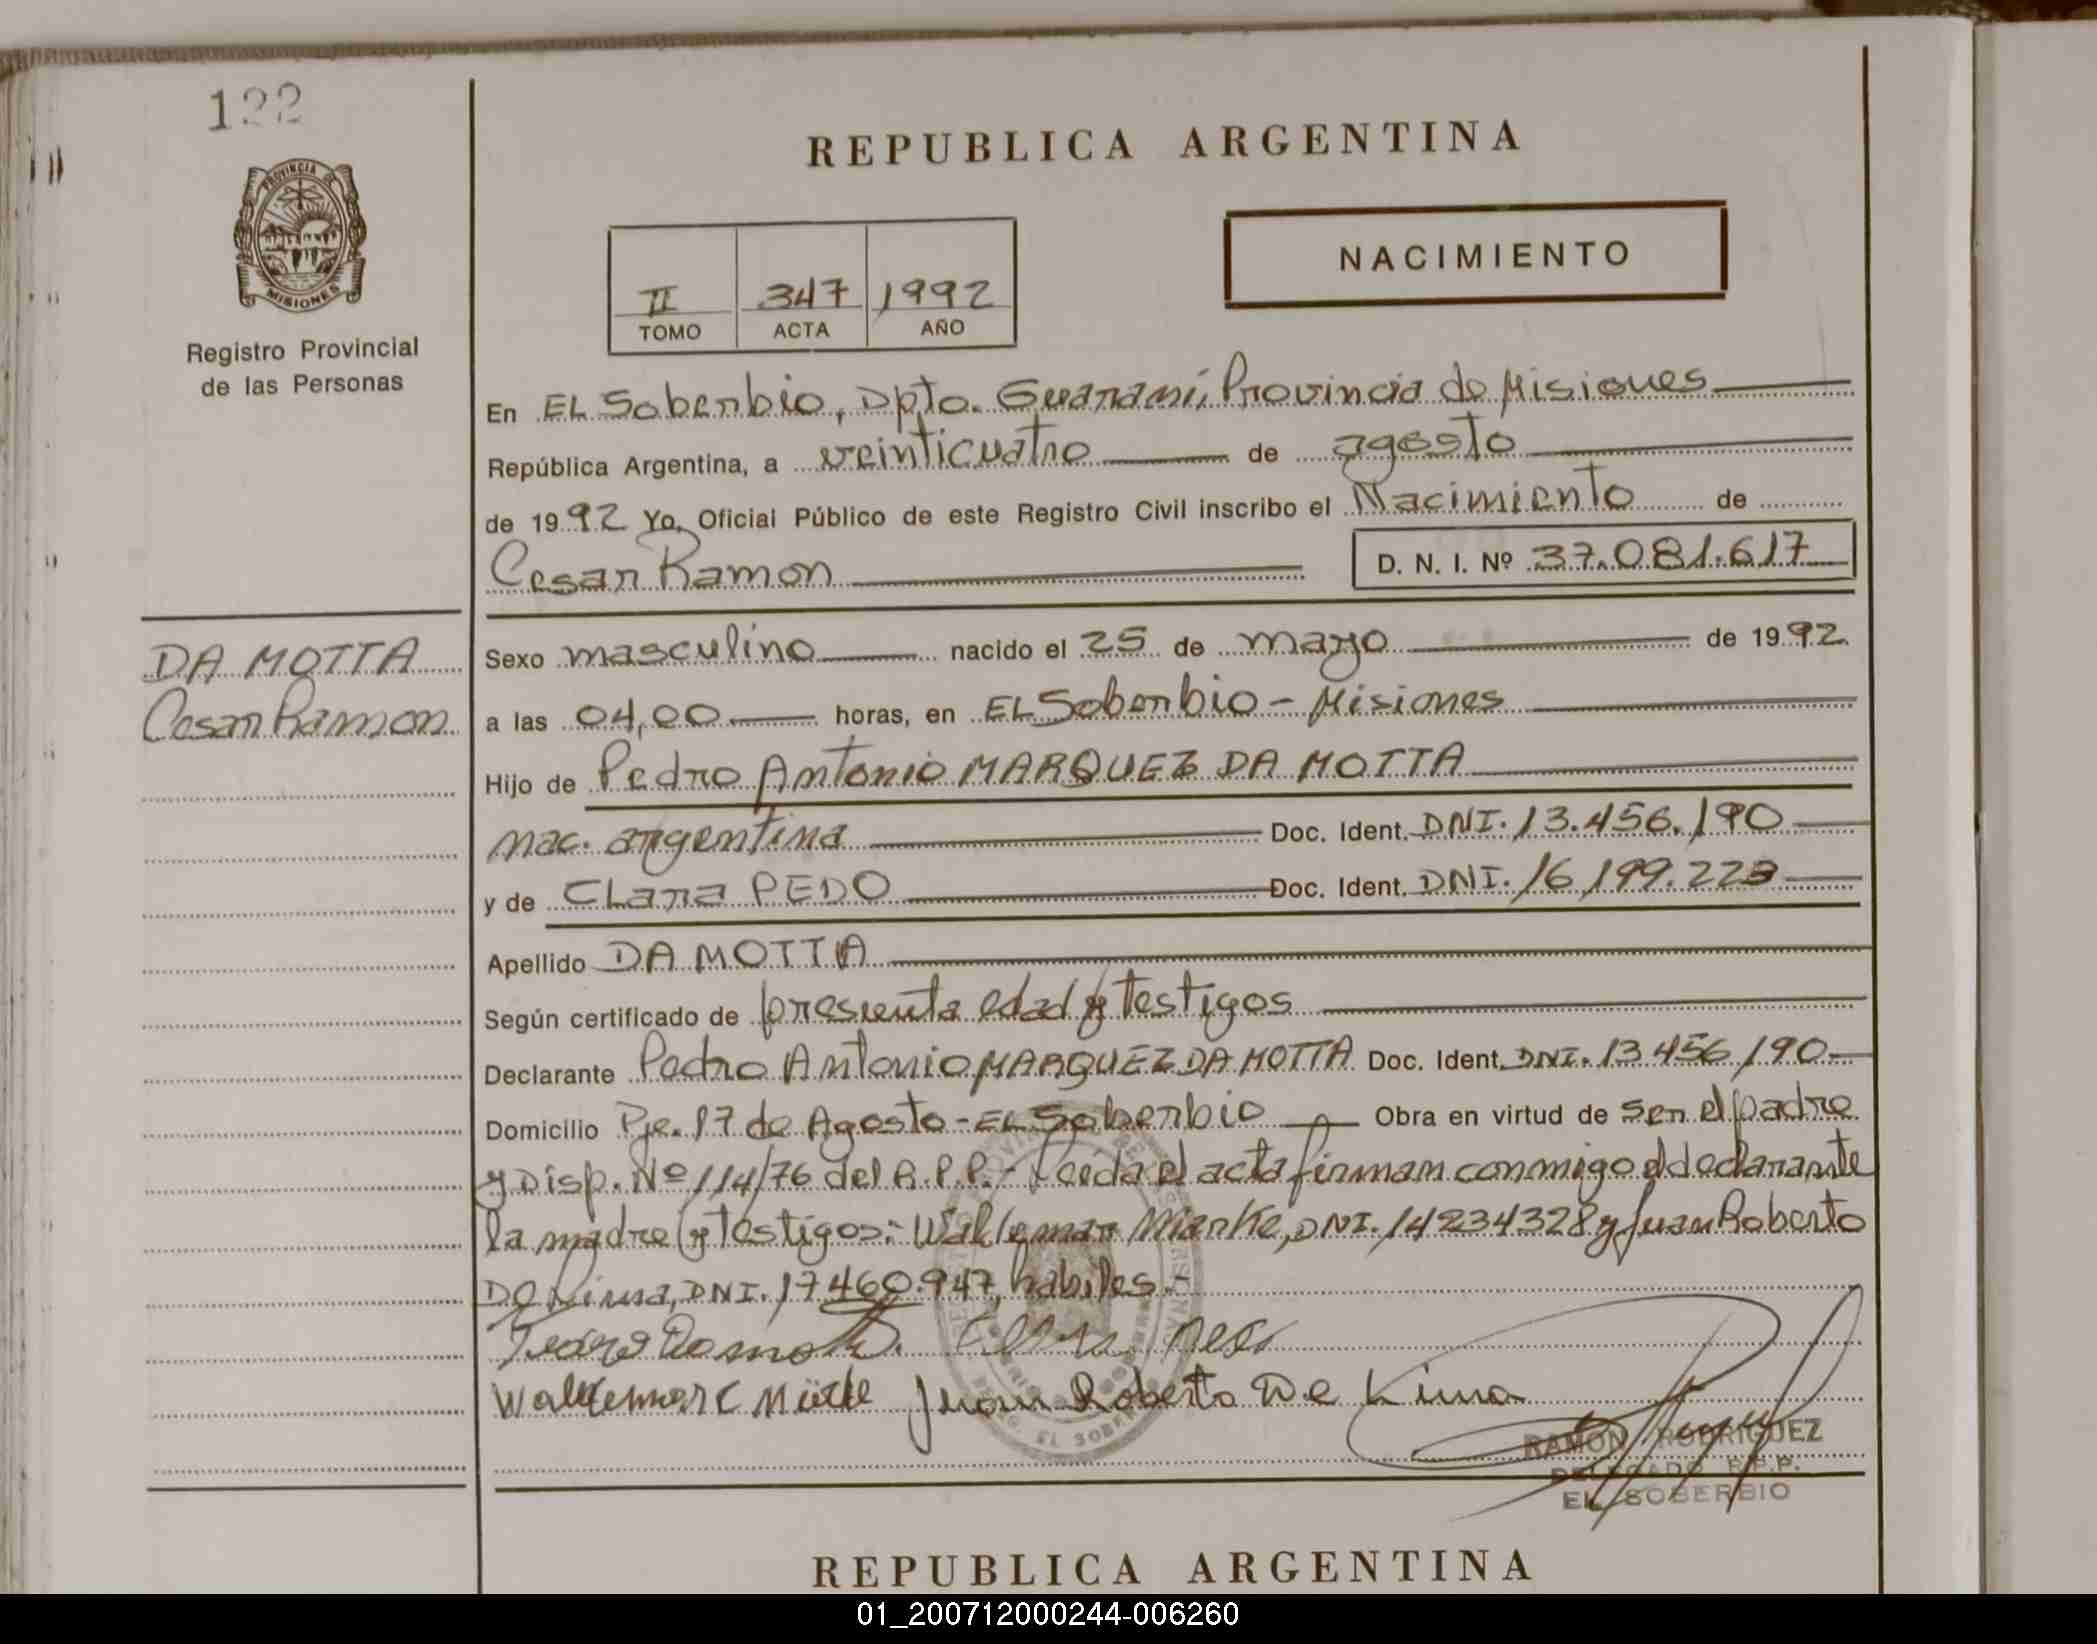 122
PROVINCIA DE
MISIONES
Registro Provincial
de las Personas
DA MOTTA
Cesar Ramon
REPUBLICA ARGENTINA
NACIMIENTO
II 347 1992
TOMO ACTA AÑO
En EL Soberbio, Dpto. Guaraní, Provincia de Misiones
República Argentina, a veinticuatro de agosto
de 1992 Yo, Oficial Público de este Registro Civil inscribo el Nacimiento de
Cesar Ramon D. N. I. Nº 37.081.617
Sexo masculino nacido el 25 de mayo de 1992.
a las 04,00 horas, en EL Soberbio - Misiones
Hijo de Pedro Antonio MARQUEZ DA MOTTA
nac. argentina Doc. Ident. DNI. 13.456.190
y de CLara PEDO Doc. Ident. DNI. 16.199.223
Apellido DA MOTTA
Según certificado de presunta edad y testigos
Declarante Pedro Antonio MARQUEZ DA MOTTA Doc. Ident. DNI. 13.456.190
Domicilio Pje. 17 de Agosto - EL Soberbio Obra en virtud de ser el padre
y Disp. Nº 114/76 del R.P.P.- Leeda el acta firman conmigo el declarante
la madre y testigos: Waldemar Mianke, DNI. 14234328 y Juan Roberto
De Lima, DNI. 17460.947, habiles.-
Juan Roberto De Lima
RAMON RODRIGUEZ
DELEGADO R.P.P.
EL SOBERBIO
REPUBLICA ARGENTINA
01_200712000244-006260